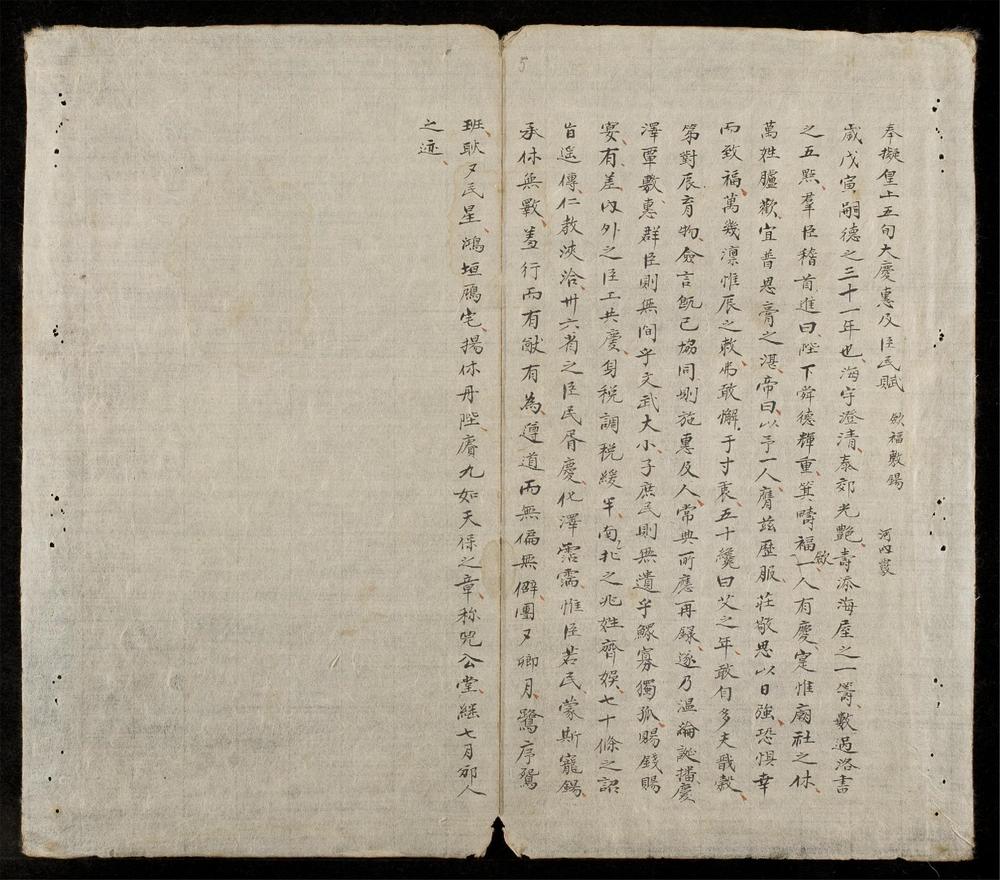 5
奉擬皇上五旬大慶惠及臣民賦 欽福敷錫 河內裴
歲戊寅嗣德之三十一年也海宇澄清泰郊光艷壽添海屋之一籌數過洛書
之五點羣臣稽首進曰陛下舜德輝重箕疇福歛一人有慶寔惟廟社之休
萬姓臚歡宜普恩膏之湛帝曰以予一人膺茲歷服莊敬思以日強恐惧幸
而致福萬幾凛惟辰之敕弗敢懈于寸衷五十纔曰艾之年敢自多夫戩穀
第對辰育物僉言既已協同則施惠及人常典所應再錄遂乃温綸誕播慶
澤覃敷惠群臣則無間乎文武大小子庶民則無遺乎鰥寡獨孤賜錢賜
宴有差內外之臣工共慶身税調税緩半南北之兆姓齊娛七十條之詔
旨遥傳仁教浹洽卅六省之臣民胥慶化澤霑濡惟臣若民蒙斯寵錫
承休無斁羞行而有猷有為遵道而無偏無僻團叉卿月鷺序鴛
班耿叉民星鴻垣鴈宅揚休丹陛賡九如天保之章称兕公堂継七月邠人
之迹